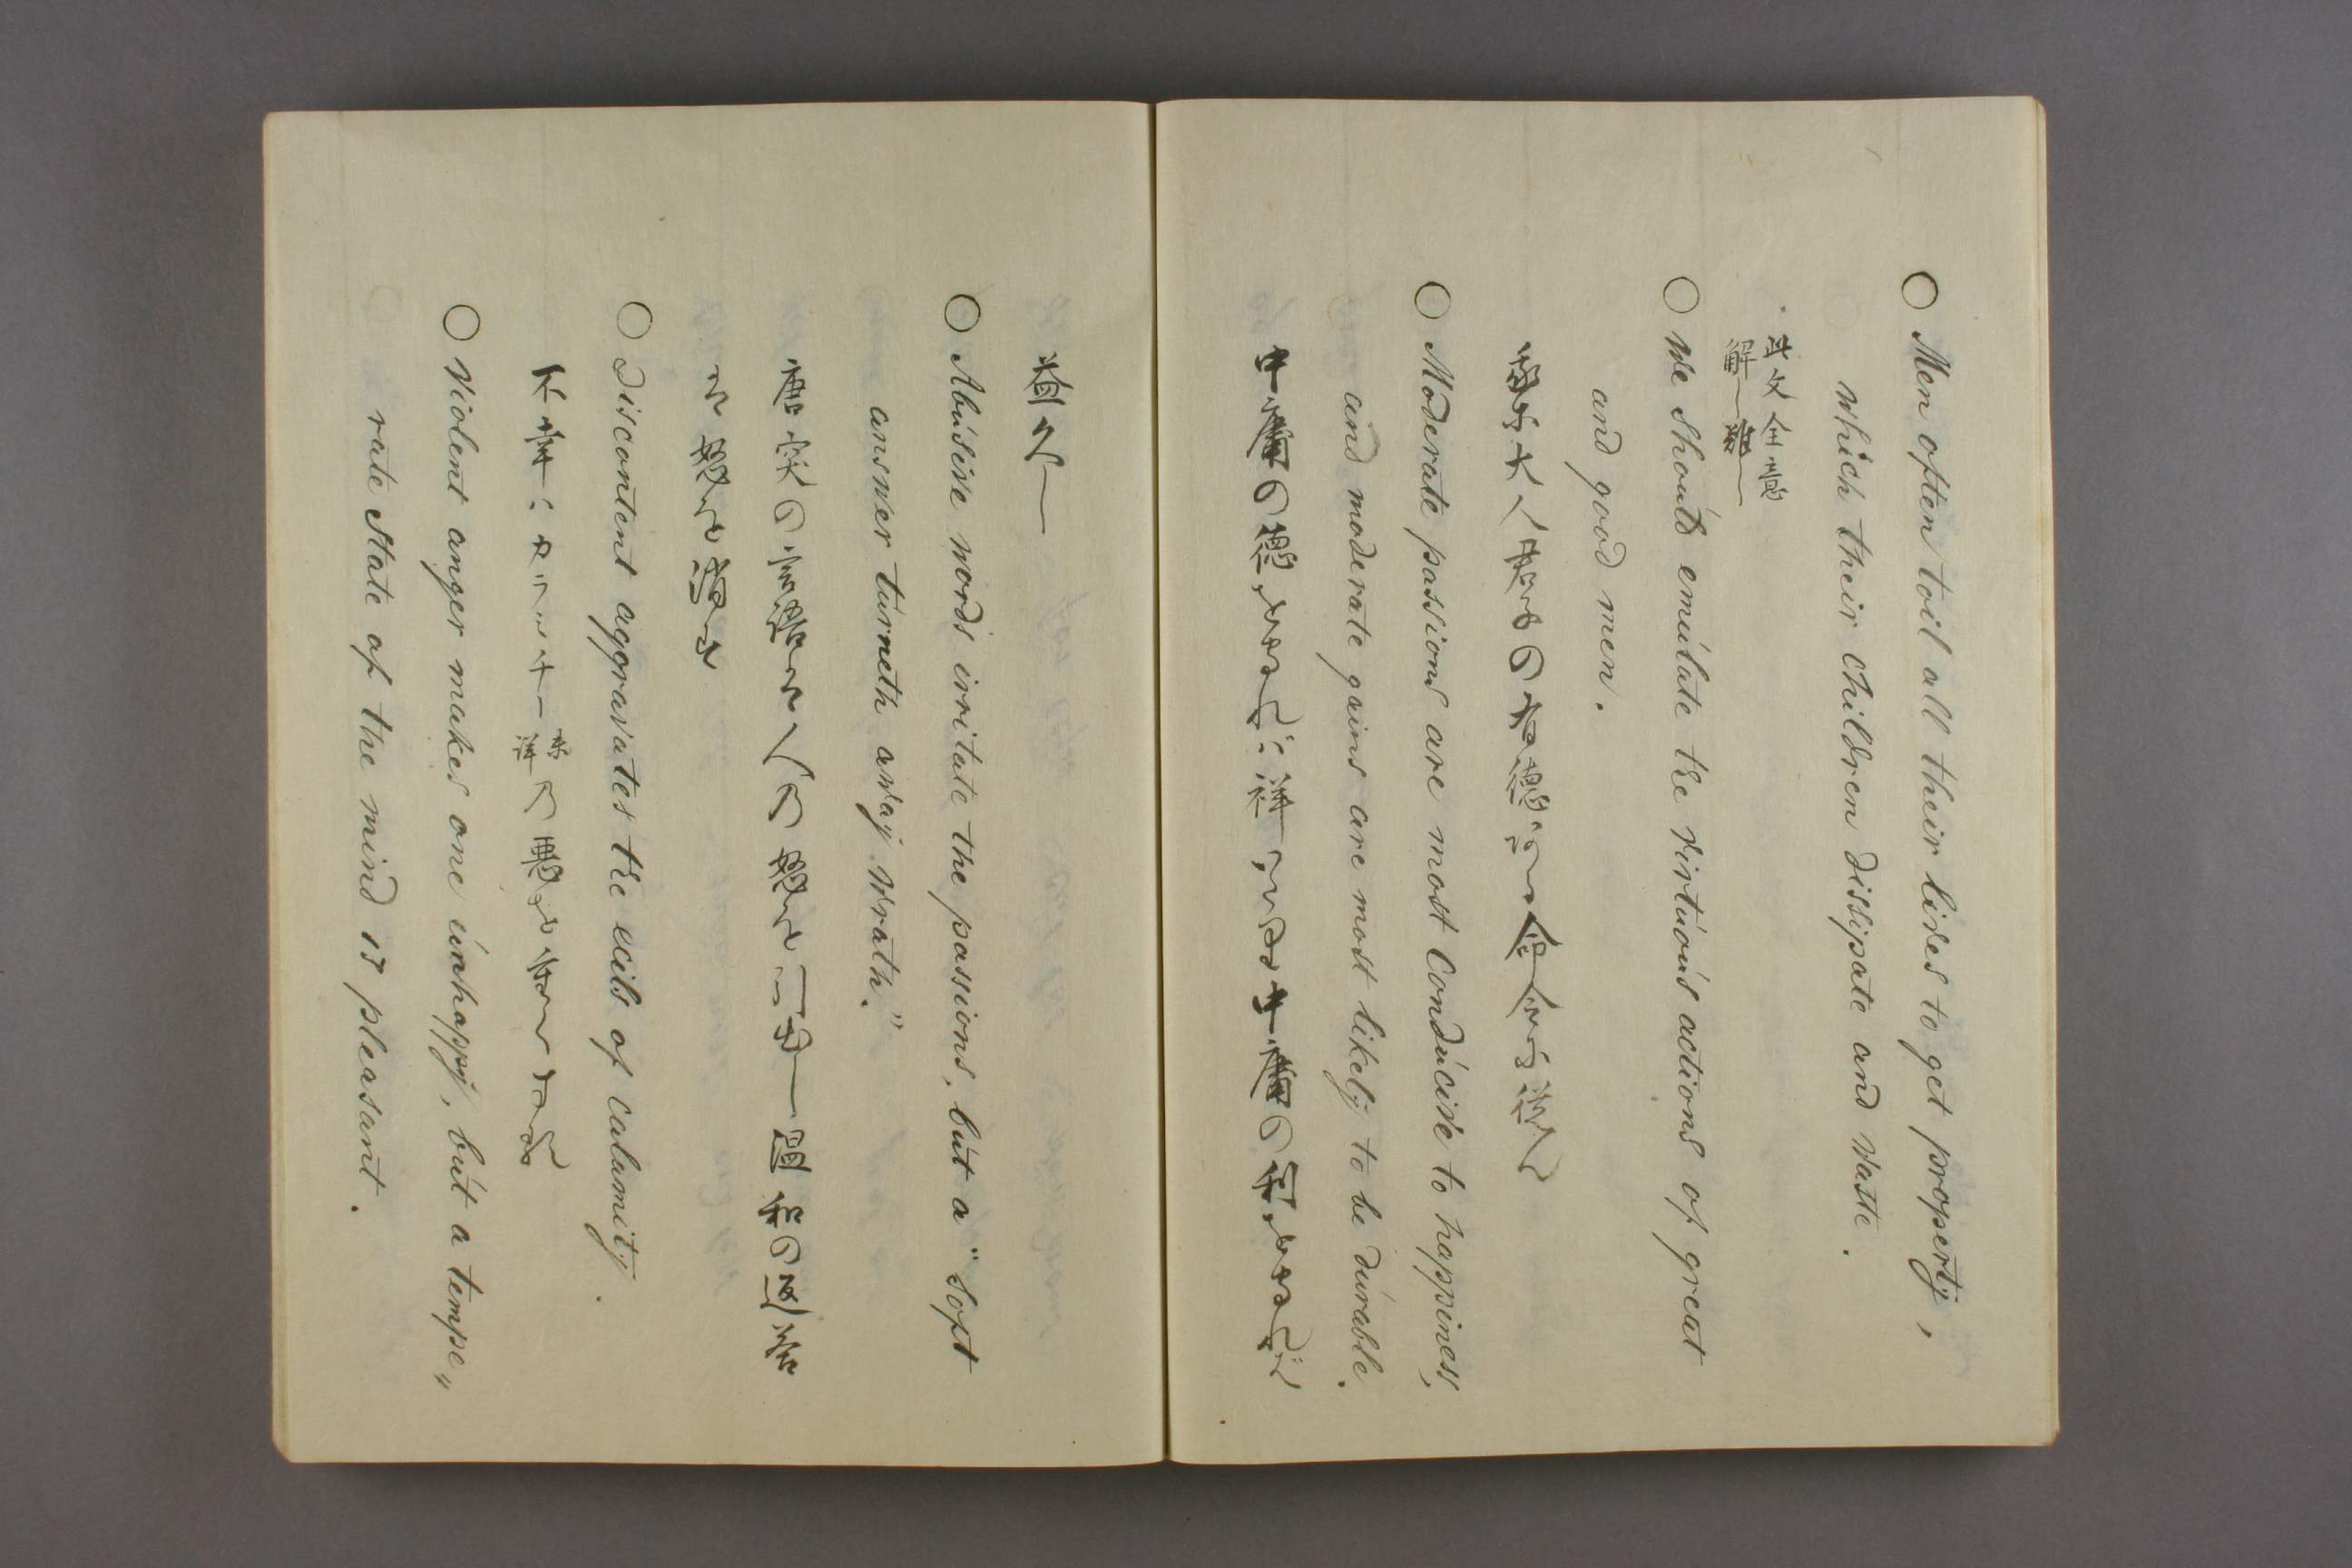 ○ Men often toil all their lives to get property,
which their children dissipate and waste.
此文全意
解し難し
○ We should emulate the virtuous actions of great
and good men.
大人君子の有徳
○ Moderate passions are most conducive to happiness,
and moderate gains are most likely to be durable.
中庸の徳 祥 中庸の利
益久し
○ Abusive words irritate the passions, but a "soft
answer turneth away wrath."
唐突の言語ハ人乃怒を 温和の返答
ハ怒を消す
○ Discontent aggravates the evils of calamity.
不幸ニ 乃悪
○ Violent anger makes one unhappy, but a tempe„
rate state of the mind is pleasant.